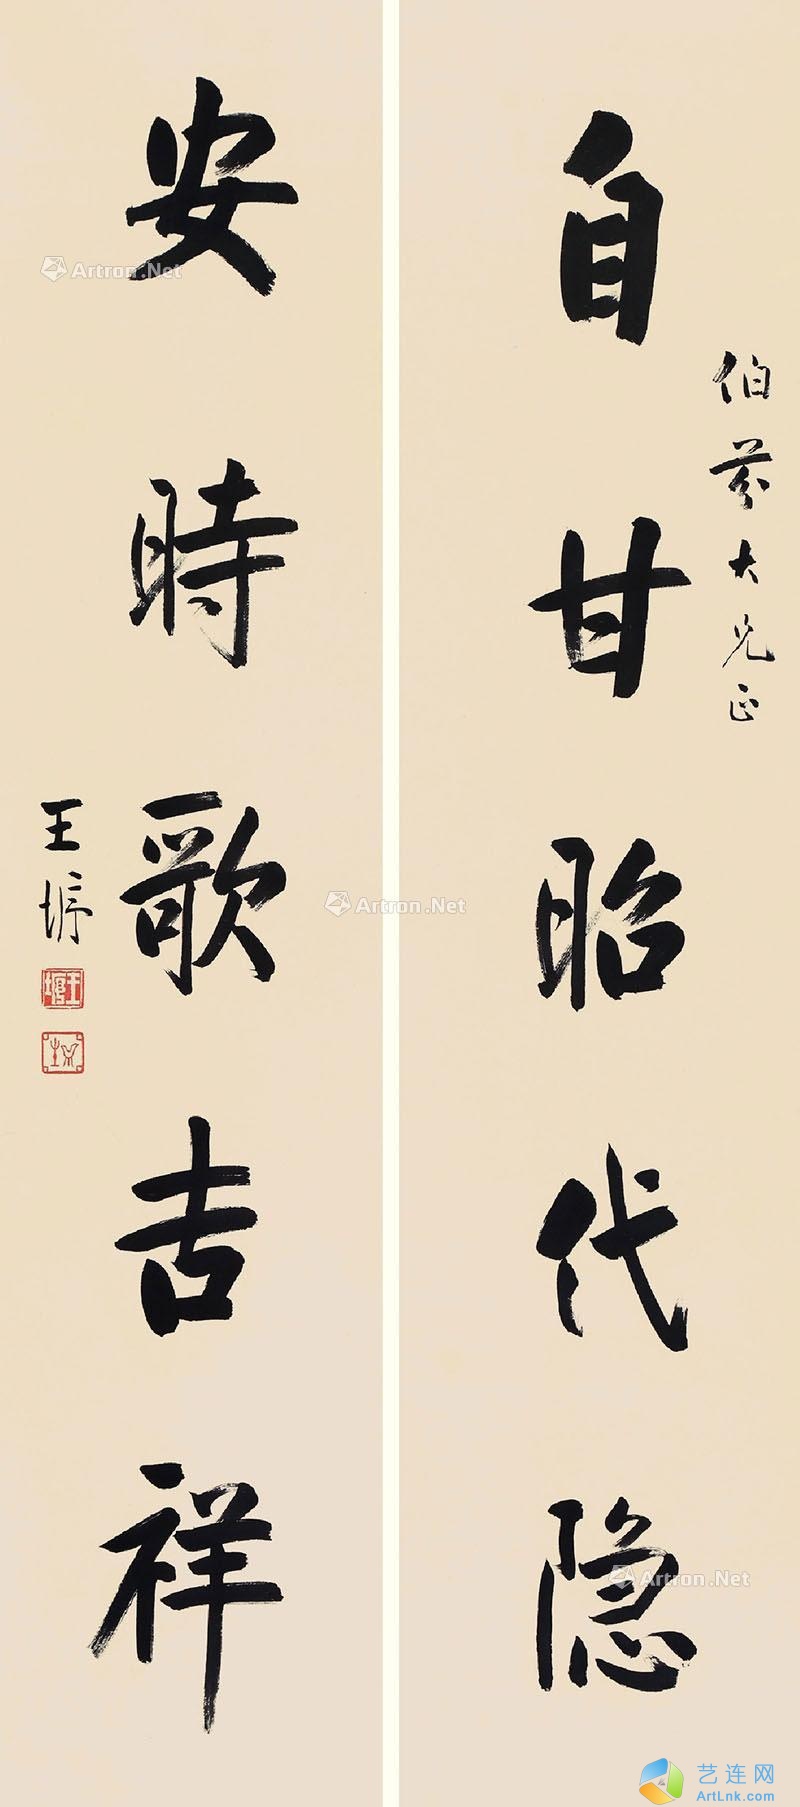 伯芬大兄正
自甘昭代隐
安時歌吉祥
王垿
王垿
Artron.Net
Artron.Net
Artron.Net
艺连网
ArtLnk.com